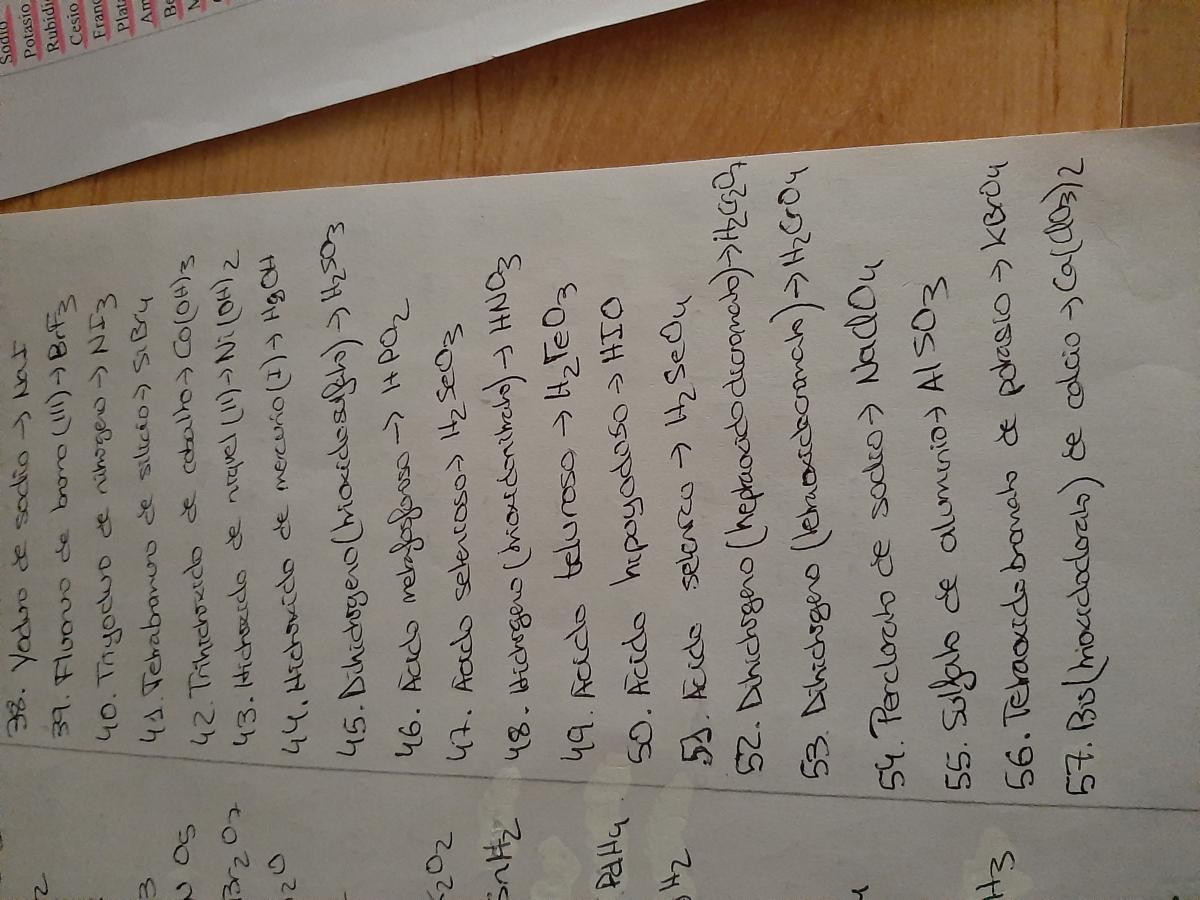 Sodio
Potasio
Rubidi
Cesio
Franc
Plata
Am
Be
38. Yoduro de sodio → NaI
39. Fluoruro de bromo (III) → BrF3
40. Triyoduro de nitrógeno → NI3
41. Tetrabromuro de silicio → SiBr4
42. Trihidróxido de cobalto → Co(OH)3
43. Hidróxido de níquel (II) → Ni(OH)2
44. Hidróxido de mercurio (I) → HgOH
45. Dihidrogeno (trioxidosulfato) → H2SO3
46. Ácido metafosforoso → HPO2
47. Ácido selenioso → H2SeO3
48. Hidrogeno (trioxidonitrato) → HNO3
49. Ácido teluroso → H2TeO3
50. Ácido hipoyodoso → HIO
51. Ácido selenico → H2SeO4
52. Dihidrogeno (heptaoxidodicromato) → H2Cr2O7
53. Dihidrogeno (tetraoxidocromato) → H2CrO4
54. Perclorato de sodio → NaClO4
55. Sulfato de aluminio → AlSO3
56. Tetraoxidobromato de potasio → KBrO4
57. Bis(trioxidoclorato) de calcio → Ca(ClO3)2
2
3
N O5
Br2O7
2O
2O2
SnH2
PdH4
H2
H3